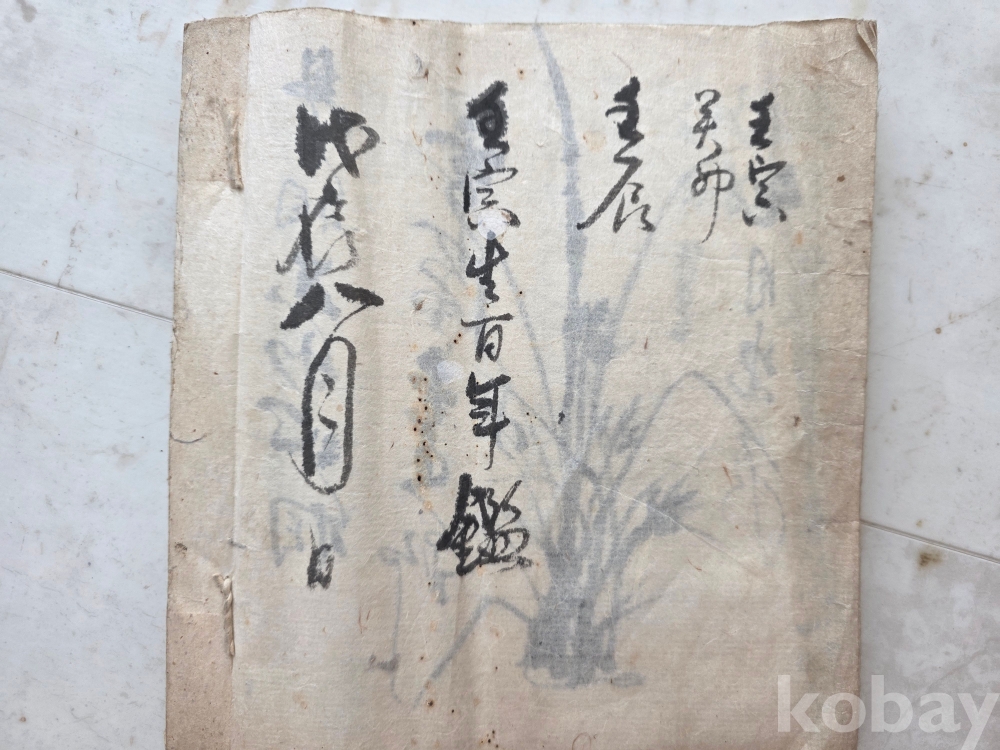 壬寅
癸卯
壬辰
壬寅生百年鑑
戊辰八月 日
kobay